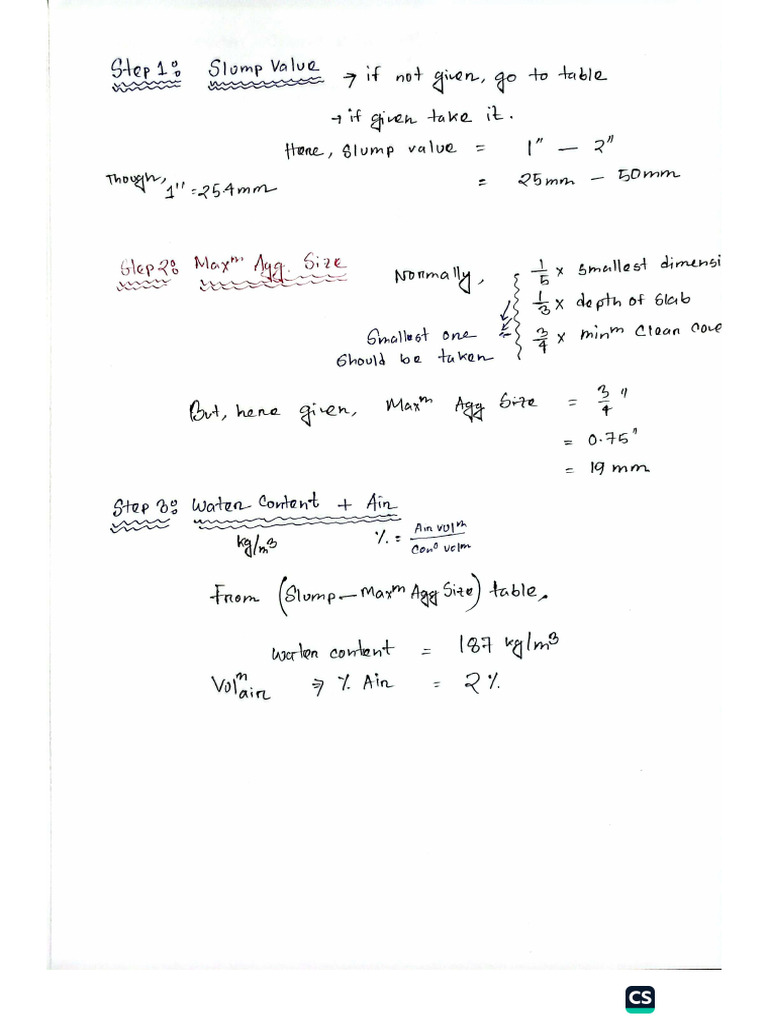 Step 1: Slump Value → if not given, go to table
→ if given take it.
Here, Slump value = 1" — 2"
Though, 1" = 25.4mm
= 25mm – 50mm
Step 2: Maxᵐ Agg. Size
Normally, 1/5 × smallest dimensi
1/3 × depth of slab
3/4 × minᵐ Clean cove
Smallest one
should be taken
But, here given, Maxᵐ Agg Size = 3/4"
= 0.75"
= 19 mm
Step 3: Water Content + Air
kg/m3 % = Air volᵐ / Conᶜ volm
From (Slump – Maxᵐ Agg Size) table,
Water content = 187 kg/m3
Volᵐ air ⇒ % Air = 2%
CS